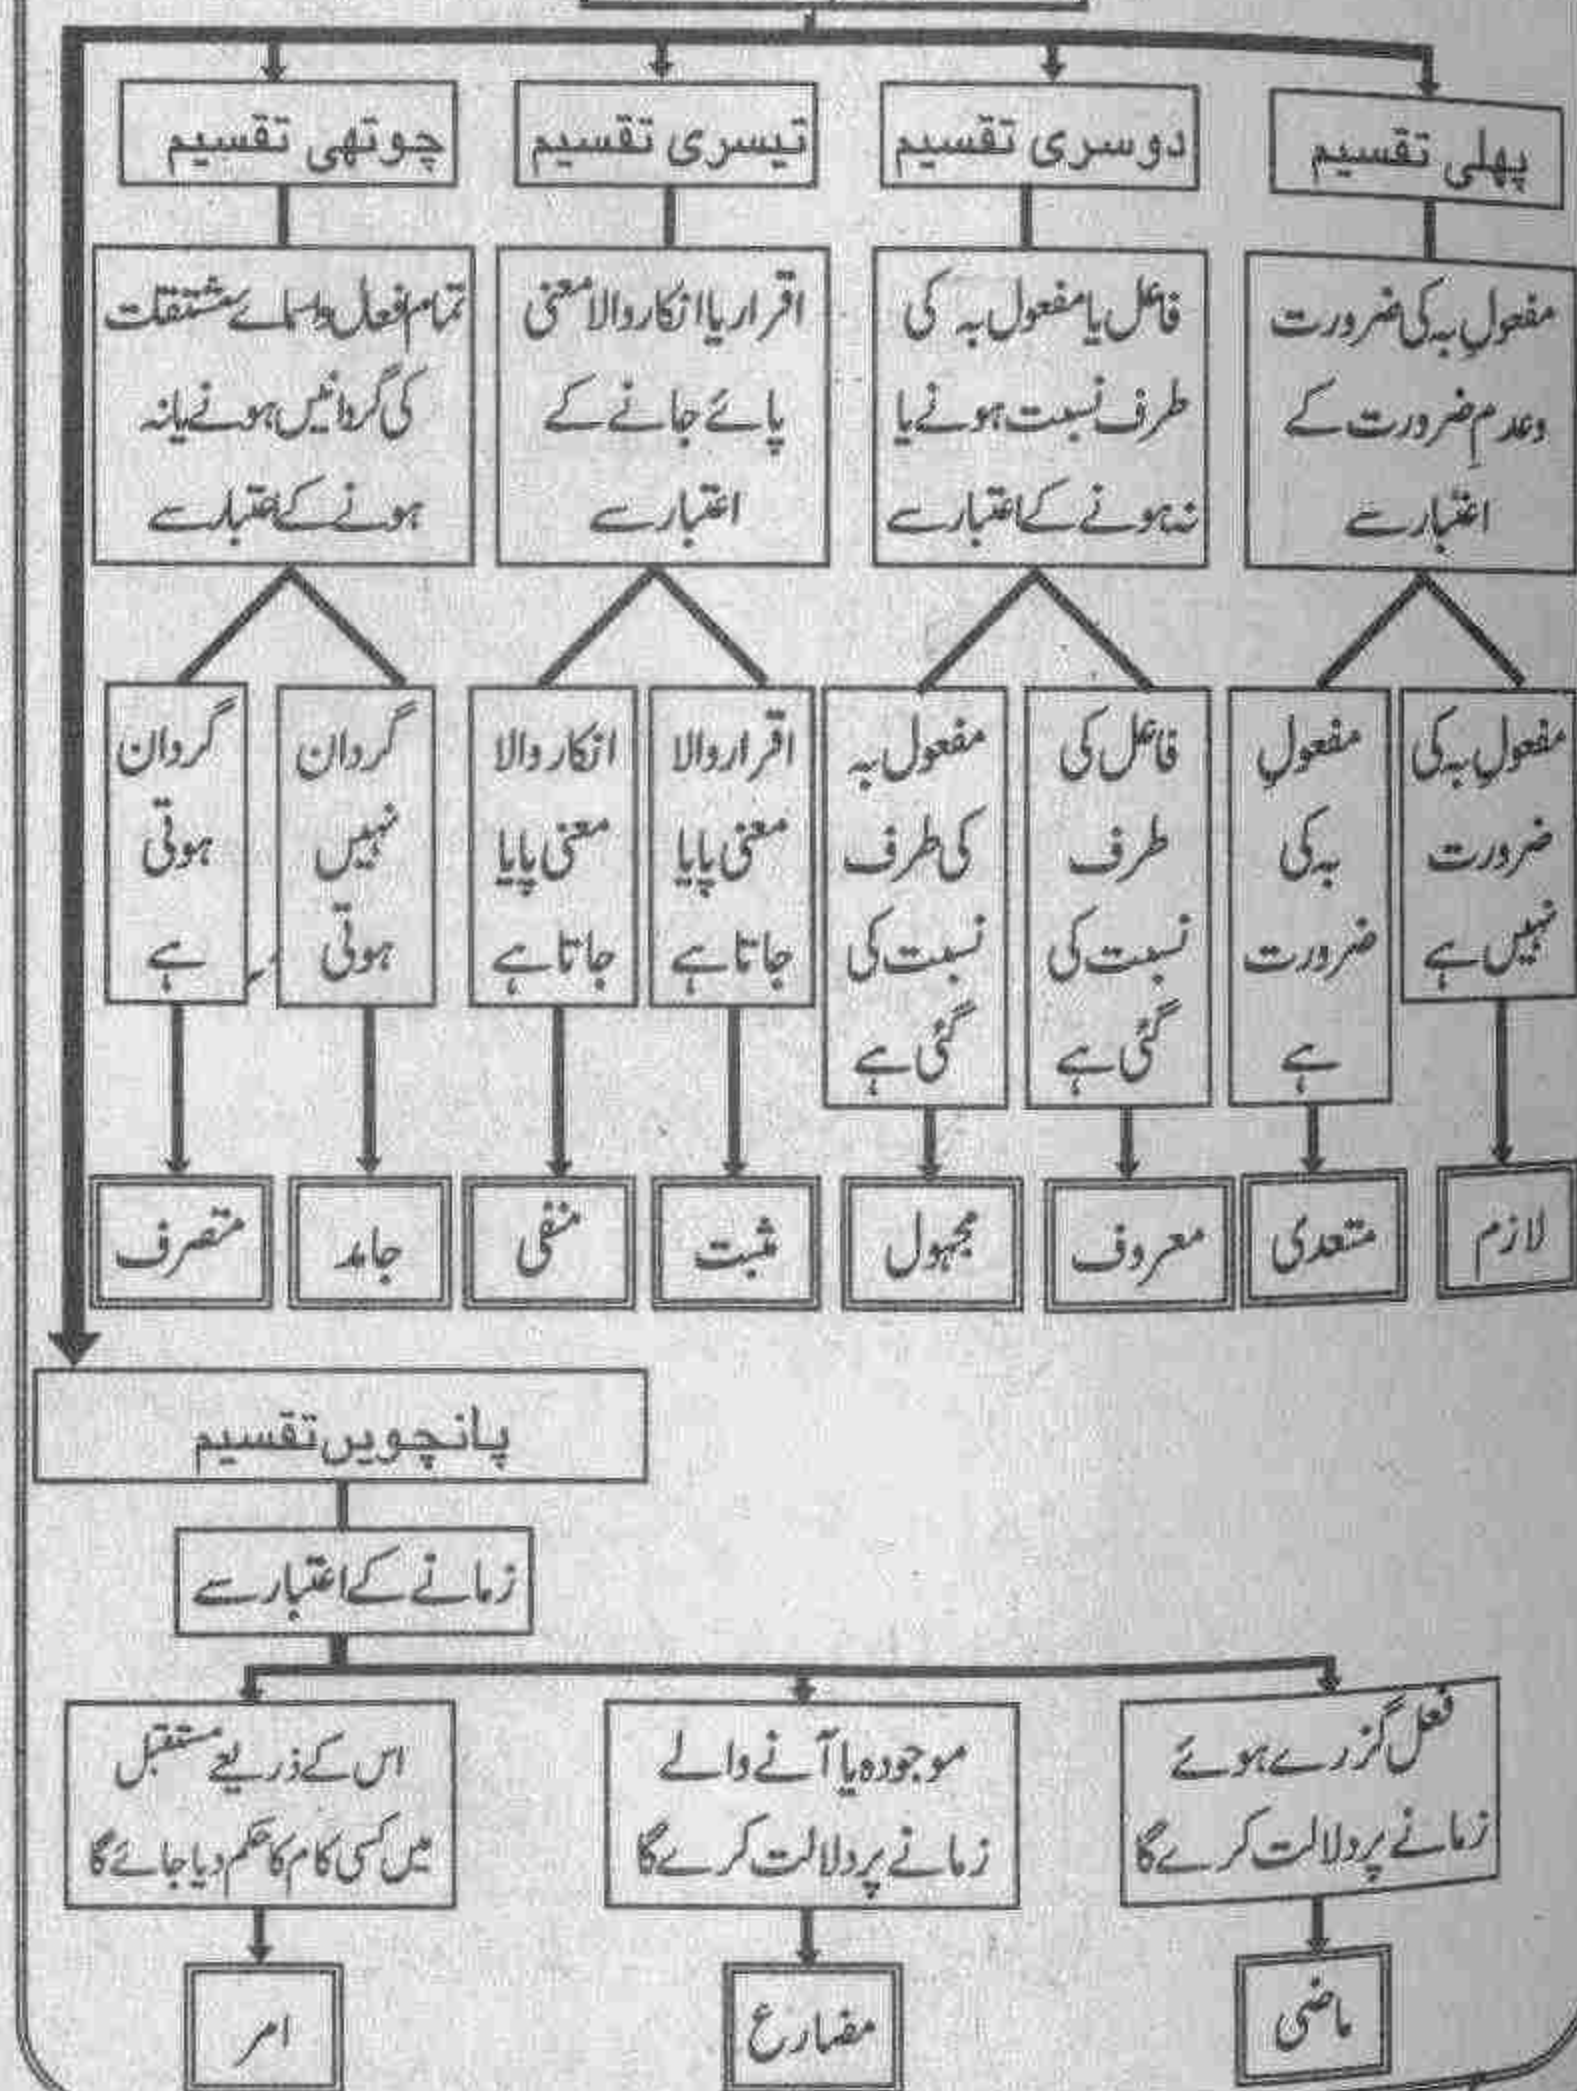 پہلی تقسیم
دوسری تقسیم
تیسری تقسیم
چوتھی تقسیم
مفعولِ بہ کی ضرورت
وعدمِ ضرورت کے
اعتبار سے
فاعل یا مفعول بہ کی
طرف نسبت ہونے یا
نہ ہونے کے اعتبار سے
اقرار یا انکار والا معنی
پائے جانے کے
اعتبار سے
تمام افعال واسمائے مشتقات
کی گردانیں ہونے یا نہ
ہونے کے اعتبار سے
مفعولِ بہ کی
ضرورت
نہیں ہے
مفعولِ
بہ کی
ضرورت
ہے
فاعل کی
طرف
نسبت کی
گئی ہے
مفعول بہ
کی طرف
نسبت کی
گئی ہے
اقرار والا
معنی پایا
جاتا ہے
انکار والا
معنی پایا
جاتا ہے
گردان
نہیں
ہوتی
گردان
ہوتی
ہے
لازم
متعدی
معروف
مجہول
مثبت
منفی
جامد
متصرف
پانچویں تقسیم
زمانے کے اعتبار سے
فعل گزرے ہوئے
زمانے پر دلالت کرے گا
موجودہ یا آنے والے
زمانے پر دلالت کرے گا
اس کے ذریعے مستقبل
میں کسی کام کا حکم دیا جائے گا
ماضی
مضارع
امر